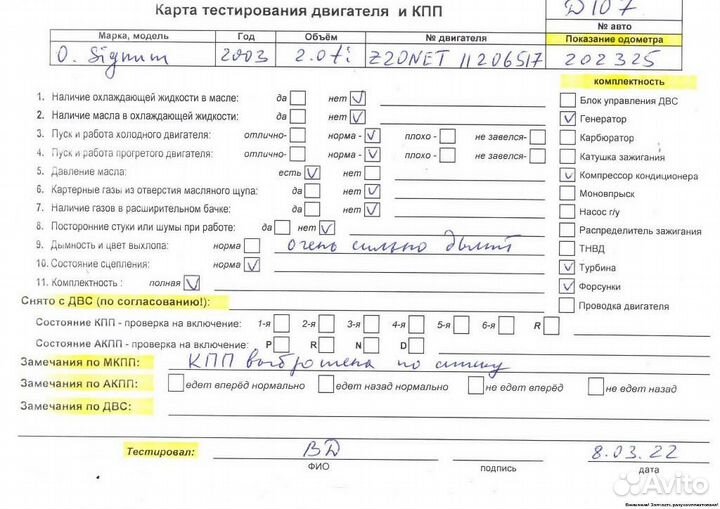 Карта тестирования двигателя и КПП
D107
№ авто
Марка, модель Год Объём № двигателя Показание одометра
O. Signum 2003 2.0ti Z20NET 11206517 202325
комплектность
1. Наличие охлаждающей жидкости в масле: да нет V
Блок управления ДВС
2. Наличие масла в охлаждающей жидкости: да нет V
V Генератор
3. Пуск и работа холодного двигателя: отлично- норма - V плохо - не завелся-
Карбюратор
4. Пуск и работа прогретого двигателя: отлично- норма - V плохо - не завелся-
Катушка зажигания
5. Давление масла: есть V нет
V Компрессор кондиционера
6. Картерные газы из отверстия масляного щупа: да нет V
Моновпрыск
7. Наличие газов в расширительном бачке: да нет V
Насос г/у
8. Посторонние стуки или шумы при работе: да нет V
Распределитель зажигания
9. Дымность и цвет выхлопа: норма очень сильно дымит
ТНВД
10. Состояние сцепления: норма V
V Турбина
11. Комплектность : полная V
V Форсунки
Снято с ДВС (по согласованию!):
Проводка двигателя
Состояние КПП - проверка на включение: 1-я 2-я 3-я 4-я 5-я 6-я R
Состояние АКПП - проверка на включение: P R N D
Замечания по МКПП: КПП выброшена по стуку
Замечания по АКПП: едет вперёд нормально едет назад нормально не едет вперёд не едет назад
Замечания по ДВС:
Тестировал: ВД 8.03.22
ФИО подпись дата
Avito